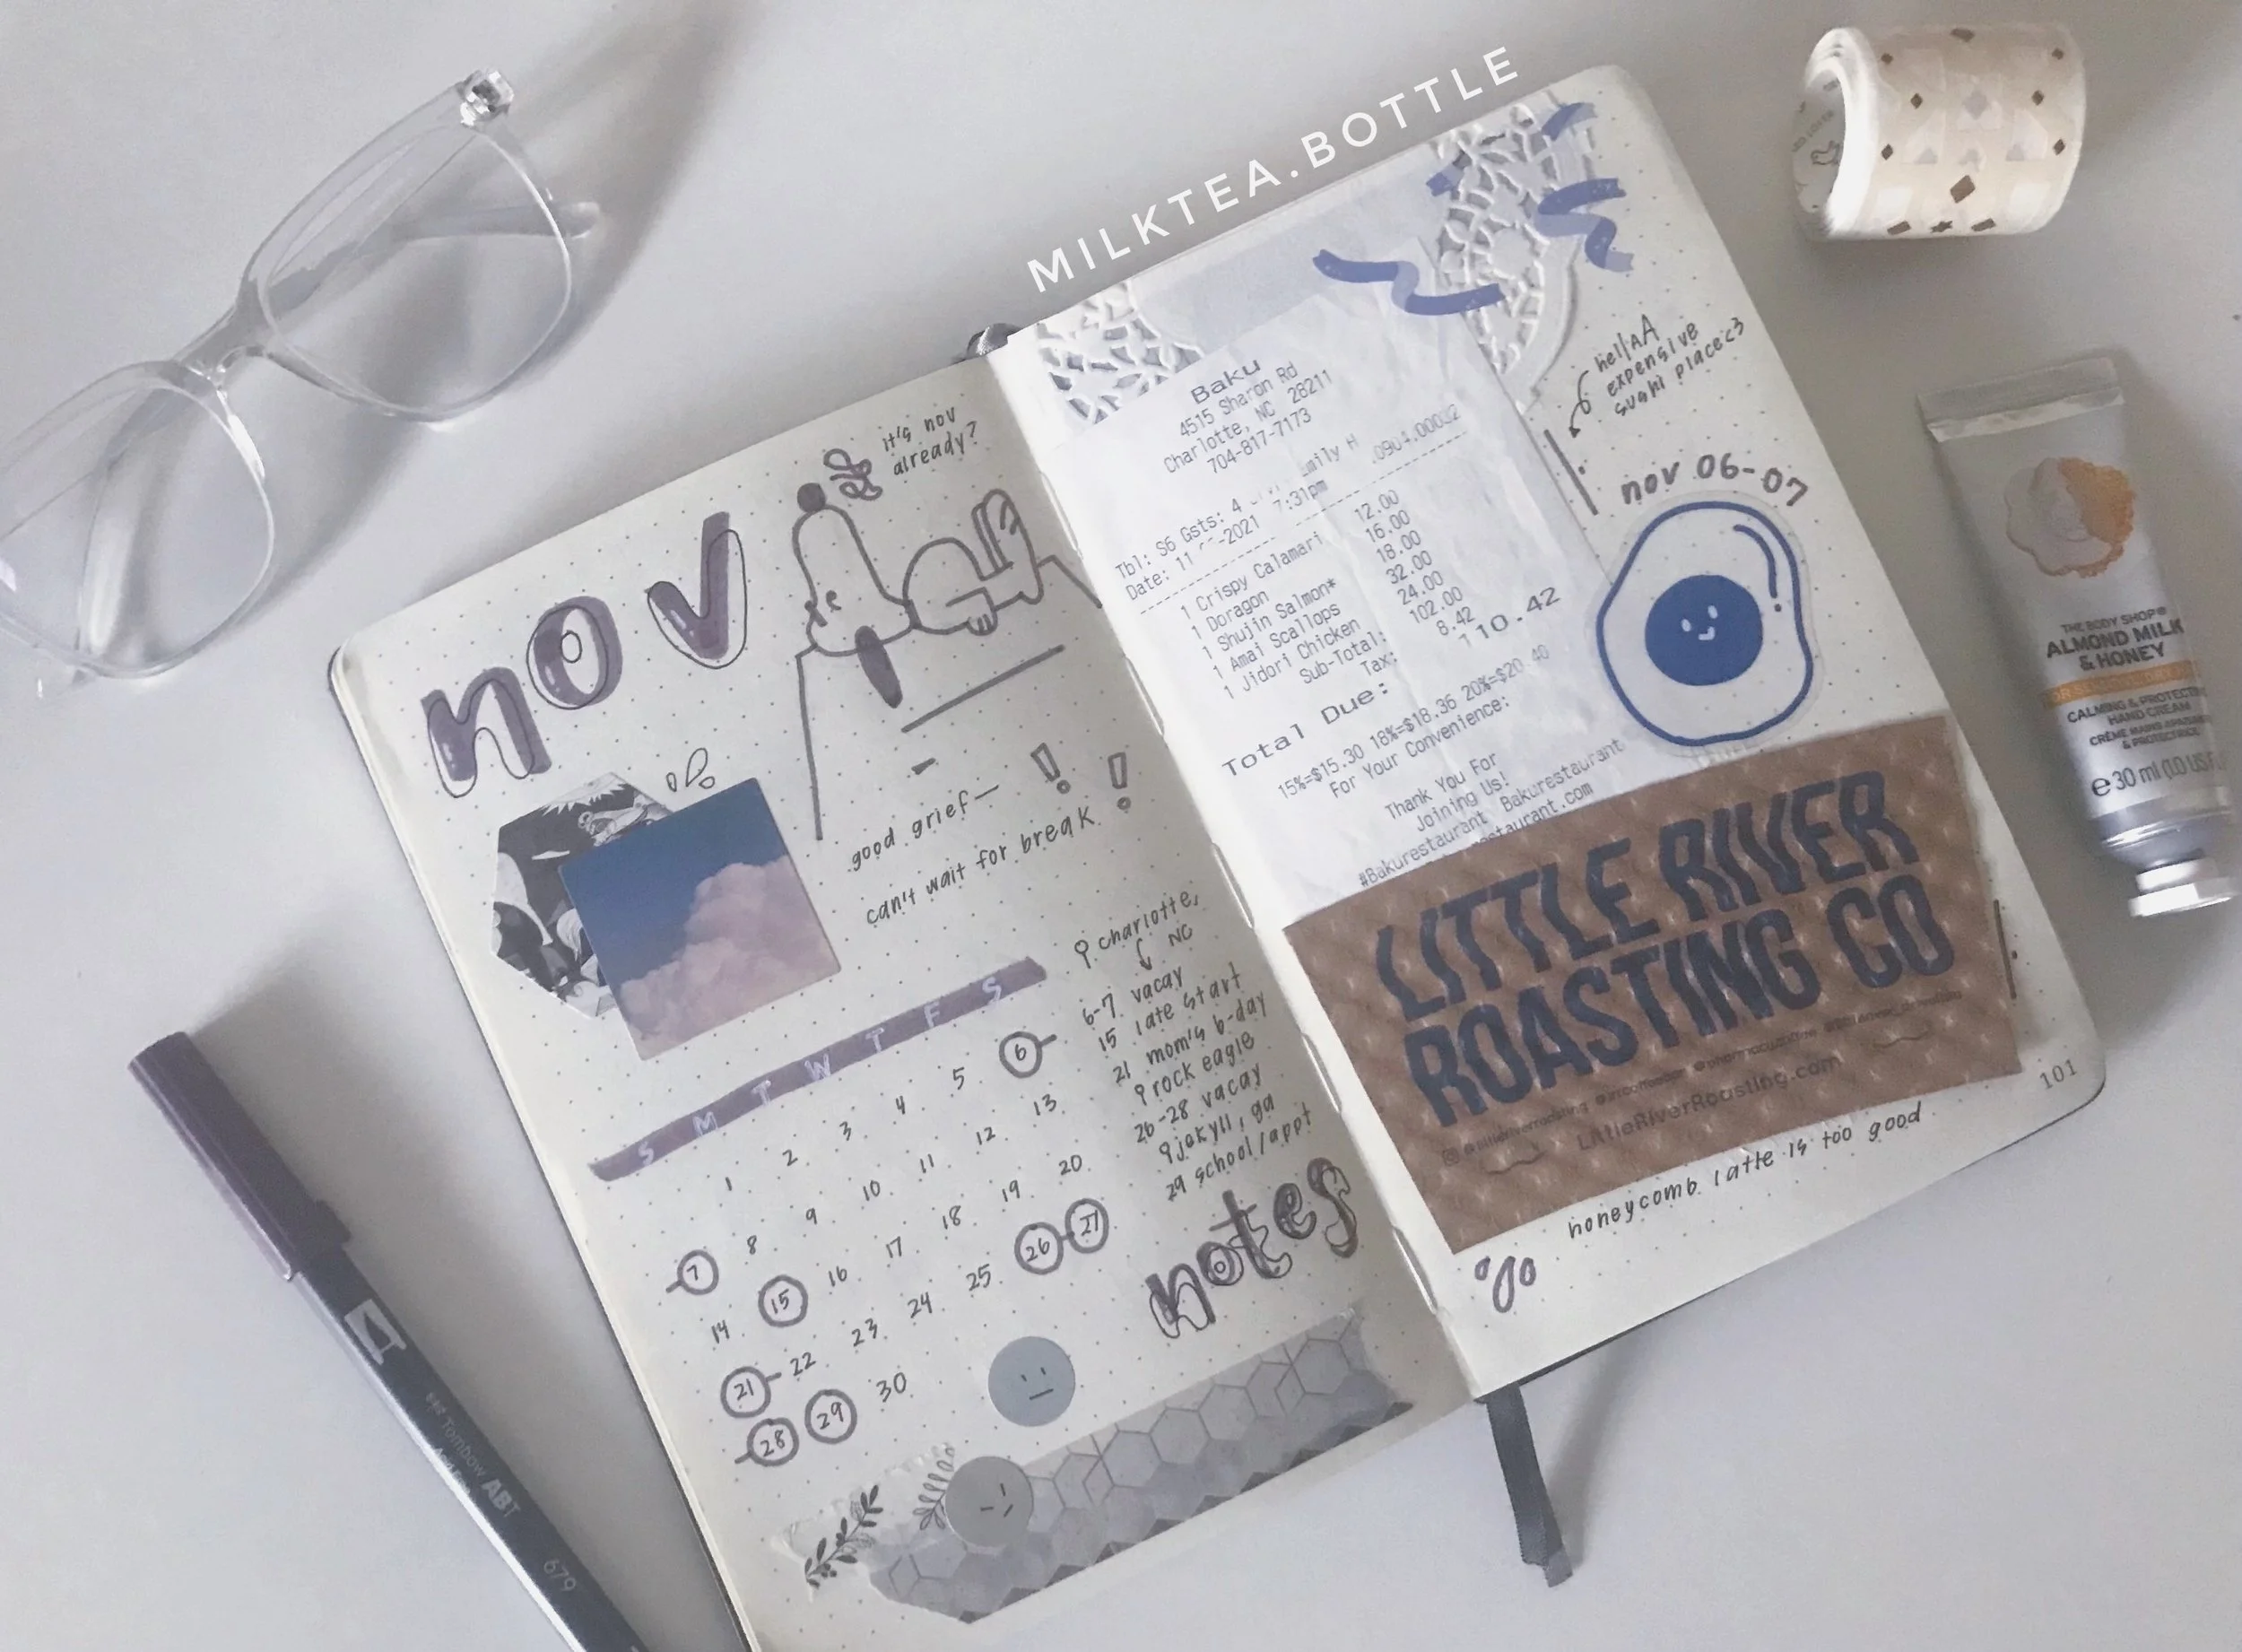 MILKTEA.BOTTLE
nov
it's nov
already?
good grief—
can't wait for break
S M T W T F S
1 2 3 4 5 6
7 8 9 10 11 12 13
14 15 16 17 18 19 20
21 22 23 24 25 26 27
28 29 30
charlotte,
NC
6-7 vacay
15 late start
21 mom's b-day
rock eagle
26-28 vacay
jekyll, ga
29 school/appt
notes
Baku
4515 Sharon Rd
Charlotte, NC 28211
704-817-7173
Tbl: S6 Gsts: 4
Date: 11 -2021 7:31pm
1 Crispy Calamari 12.00
1 Doragon 16.00
1 Shujin Salmon* 18.00
1 Amai Scallops 32.00
1 Jidori Chicken 24.00
Sub-Total: 102.00
Tax: 8.42
Total Due: 110.42
15%=$15.30 18%=$18.36 20%=$20.40
For Your Convenience:
Thank You For
Joining Us!
#Bakurestaurant Bakurestaurant
staurant.com
hellAA
expensive
sushi place<3
nov 06-07
LITTLE RIVER
ROASTING CO
LittleRiverRoasting.com
honeycomb latte is too good
101
THE BODY SHOP®
ALMOND MILK
& HONEY
CALMING & PROTECTING
HAND CREAM
CRÈME MAINS
& PROTECTRICE
e 30 ml
Tombow ABT
679